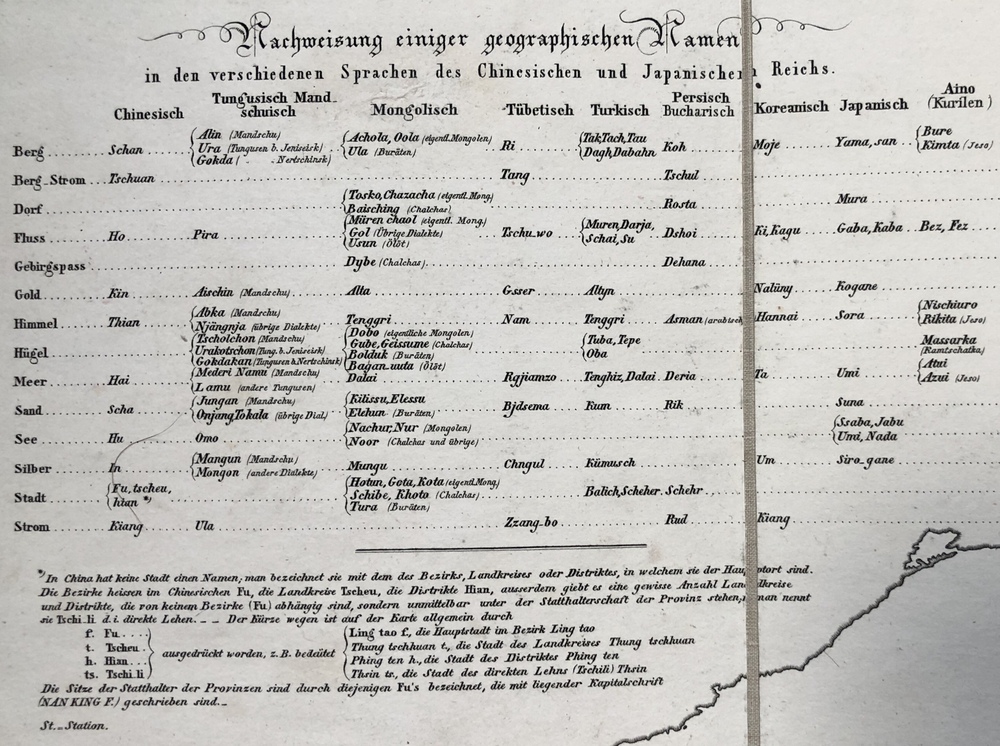 Nachweisung einiger geographischen Namen
in den verschiedenen Sprachen des Chinesischen und Japanischen Reichs.
Chinesisch Tungusisch Mandschuisch Mongolisch Tübetisch Turkisch Persisch Bucharisch Koreanisch Japanisch Aino (Kurilen)
Berg Schan Alin (Mandschu) Ura (Tungusen b. Jeniseisk) Gokda ( . Nertschinsk) Achola, Oola (eigentl. Mongolen) Ula (Buräten) Ri Tak, Tach, Tau Dagh, Dabahn Koh Moje Yama, san Bure Kimta (Jeso)
Berg-Strom Tschuan Tang Tschul
Dorf Tosko, Chazacha (eigentl. Mong.) Baisching (Chalchas) Rosta Mura
Fluss Ho Pira Müren chaol (eigentl. Mong.) Gol (Übrige Dialekte) Usun (Ölöt) Tschu-wo Muren, Darja, Schai, Su Dshoi Ki, Kagu Gaba, Kaba Bez, Fez
Gebirgspass Dybe (Chalchas) Dehana
Gold Kin Aischin (Mandschu) Alta Gsser Altyn Nalüny Kogane
Himmel Thian Abka (Mandschu) Njängnja (übrige Dialekte) Tenggri Nam Tenggri Asman (arabisch) Hannai Sora Nischiuro Rikita (Jeso)
Hügel Tscholchon (Mandschu) Urakotschon (Tung. b. Jeniseisk) Gokdakan (Tungusen b. Nertschinsk) Dobo (eigentliche Mongolen) Gube, Geissume (Chalchas) Bolduk (Buräten) Bagan-uuta (Ölöt) Tuba, Tepe Oba Massarka (Kamtschatka)
Meer Hai Mederi Namu (Mandschu) Lamu (andere Tungusen) Dalai Rgjiamzo Tenghiz, Dalai Deria Ta Umi Atui Azui (Jeso)
Sand Scha Jungan (Mandschu) Onjang, Tokala (übrige Dial.) Kilissu, Elessu Elehun (Buräten) Bjdsema Kum Rik Suna
See Hu Omo Nachur, Nur (Mongolen) Noor (Chalchas und übrige) Ssaba, Jabu Umi, Nada
Silber In Mangun (Mandschu) Mongon (andere Dialekte) Mungu Chngul Kümusch Um Siro-gane
Stadt Fu, tscheu, hian *) Hotun, Gota, Kota (eigentl. Mong.) Schibe, Khoto (Chalchas) Tura (Buräten) Balich, Scheher Schehr
Strom Kiang Ula Zzang-bo Rud Kiang
*) In China hat keine Stadt einen Namen; man bezeichnet sie mit dem des Bezirks, Landkreises oder Distriktes, in welchem sie der Hauptort sind.
Die Bezirke heissen im Chinesischen Fu, die Landkreise Tscheu, die Distrikte Hian, ausserdem giebt es eine gewisse Anzahl Landkreise
und Distrikte, die von keinem Bezirke (Fu) abhängig sind, sondern unmittelbar unter der Statthalterschaft der Provinz stehen, man nennt
sie Tschi-li d. i. direkte Lehen. _ _ Der Kürze wegen ist auf der Karte allgemein durch
f. Fu Ling tao f., die Hauptstadt im Bezirk Ling tao
t. Tscheu Thung tschhuan t., die Stadt des Landkreises Thung tschhuan
ausgedrückt worden, z. B. bedeütet
h. Hian Phing ten h., die Stadt des Distriktes Phing ten
ts. Tschi-li Thsin ts., die Stadt des direkten Lehns (Tschili) Thsin
Die Sitze der Statthalter der Provinzen sind durch diejenigen Fu's bezeichnet, die mit liegender Kapitalschrift
(NAN KING F.) geschrieben sind._
St._Station.